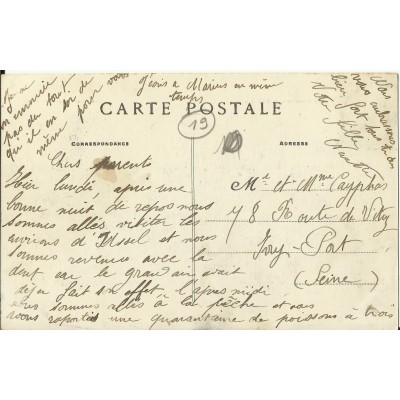 J'écris à Marius en même
temps
CARTE POSTALE
19
CORRESPONDANCE
ADRESSE
Chers parents
Hier lundi après une
bonne nuit de repos nous
sommes allés visiter les
environs d'Ussel et nous
sommes revenus avec la
dent car le grand air avait
déjà fait son effet l'après midi
nous sommes allés à la pêche et nous
avons rapporté une quarantaine de poissons à trois
Mr et Mme Cayphas
78 Route de Vitry
Ivry-Port
(Seine)
ennuie
pas du tout
qu'il en soit de
même pour vous
Votre fille